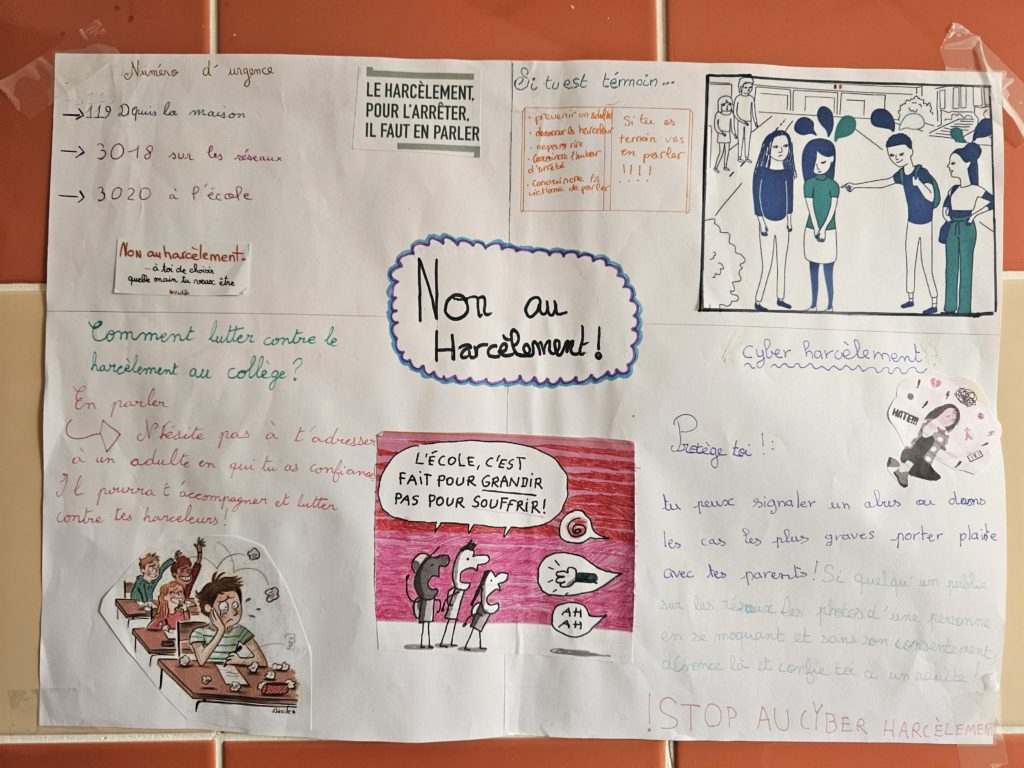 Numéro d'urgence
→ 119 Dquis la maison
→ 3018 sur les réseaux
→ 3020 à l'école
LE HARCÈLEMENT,
POUR L'ARRÊTER,
IL FAUT EN PARLER
Non au harcèlement.
...à toi de choisir
quelle main tu veux être
Si tu est témoin...
• prévenir un adulte
• dénoncer le harceleur
• ne pas rire
• Convaincre l'auteur
d'arrêter
• Convaincre la
victime de parler
Si tu es
temoin vas
en parler
!!!!
....
Non au
Harcèlement!
Comment lutter contre le
harcèlement au collège?
En parler
N'hésite pas à t'adresser
à un adulte en qui tu as confiance,
Il pourra t'accompagner et lutter
contre tes harceleurs!
L'ÉCOLE, C'EST
FAIT POUR GRANDIR
PAS POUR SOUFFRIR!
6
AH
AH
cyber harcèlement
HATE!!!
Protège toi!:
tu peux signaler un abus ou dans
les cas les plus graves porter plainte
avec tes parents! Si quelqu'un publie
sur les réseaux les photos d'une personne
en se moquant et sans son consentement,
dénonce là et confie toi à un adulte!
!STOP AU CYBER HARCÈLEMENT